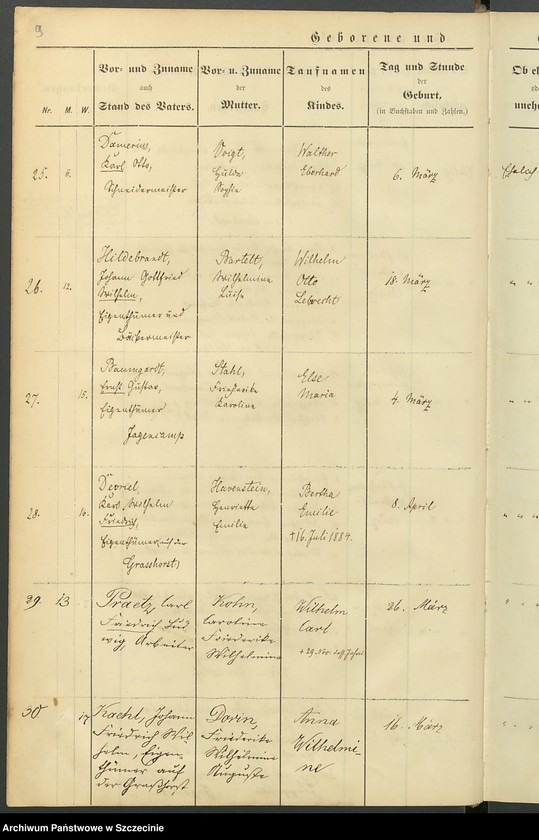 9
Geborene und
Nr. M. W.
Vor- und Zuname
auch
Stand des Vaters.
Vor- u. Zuname
der
Mutter.
Taufnamen
des
Kindes.
Tag und Stunde
der
Geburt.
(in Buchstaben und Zahlen.)
Ob eh
oder
unehe
25.
Damerius,
Karl Otto,
Schneidermeister
Voigt,
Hulda
Sophie
Walther
Eberhard
6. März
26. 12.
Hildebrandt,
Johann Gottfried
Wilhelm,
Eigenthümer und
Bäckermeister
Bartelt,
Wilhelmine
Luise
Wilhelm
Otto
Lebrecht
18. März
27. 15.
Baumgardt,
Ernst Gustav,
Eigenthümer
Jagenkamp
Stahl,
Friederike
Karoline
Else
Maria
4. März
28. 16.
Devriel,
Karl Wilhelm
Friedrich,
Eigenthümer auf der
Grasshorst
Havenstein,
Henriette
Emilie
Bertha
Emilie
† 16. Juli 1884.
8. April
29. 13
Praetz, Carl
Friedrich Lud
wig, Arbeiter
Kohn,
Caroline
Friederike
Wilhelmine
Wilhelm
Carl
† 29. Nov.
26. März
30 17
Kaehl, Johann
Friedrich Wil
helm, Eigen-
thümer auf
der Grashorst
Dorin,
Friederike
Wilhelmine
Auguste
Anna
Wilhelmi-
ne
16. März
Archiwum Państwowe w Szczecinie